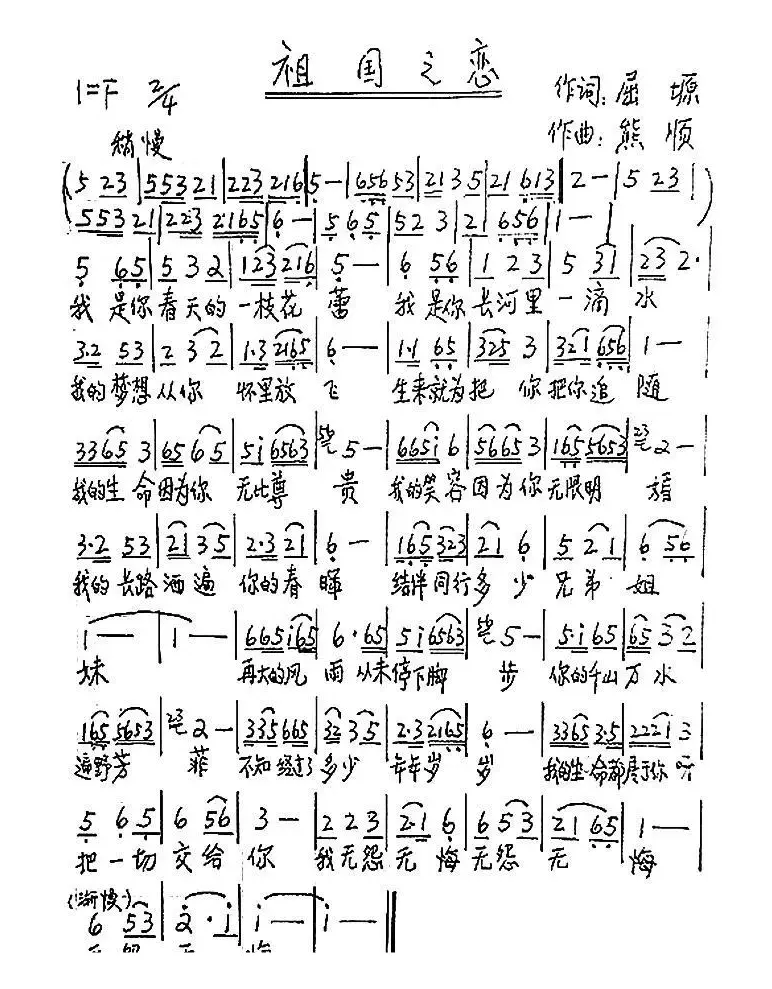 祖国之恋
1=F 2/4
作词：屈塬
作曲：熊顺
稍慢
(5 23 | 553 21 | 223 216 | 5 — | 656 53 | 213 5 | 21 613 | 2 — | 5 23 |
553 21 | 223 2165 | 6 — | 5 6 5 | 52 3 | 21 656 | 1 — | )
5 65 | 5 3 2 | 123 216 | 5 — | 6 56 | 1 2 3 | 5 31 | 23 2· |
我 是你 春天的 一枝花 蕾 我 是你 长河里 一滴 水
3·2 53 | 2 3 2 | 1·3 2165 | 6 — | 1·1 65 | 325 3 | 321 656 | 1 — |
我的梦想 从你 怀里放 飞 生来就为把 你 把你追 随
3365 3 | 65 6 5 | 5i 6563 | 56 5 — | 665i 6 | 5665 3 | 165 5653 | 23 2 — |
我的生 命因为你 无比尊 贵 我的笑容因为你无限明 媚
3·2 53 | 21 3 5 | 2·3 21 | 6 — | 165 323 | 21 6 | 5 2 1 | 6 56 |
我的长路洒遍 你的春 晖 结伴同行多少 兄弟 姐
i — | i — | 665 i65 | 6·65 | 5i 6563 | 56 5 — | 5·i 65 | 65 3 2 |
妹 再大的风 雨 从未停下脚 步 你的千山万 水
165 5653 | 23 2 — | 335 665 | 32 3 5 | 2·3 2165 | 6 — | 3365 3·5 | 2221 3 |
遍野芳 菲 不知经过了多少 年年岁 岁 我的生命都尽于你 呀
5 6 5 | 6 56 | 3 — | 2 2 3 | 2·1 6 | 6 5 3 | 21 65 | 1 — |
把一切 交给 你 我无怨 无 悔 无怨 无 悔
(渐慢)
6 53 | 2·i | i — | i — ‖